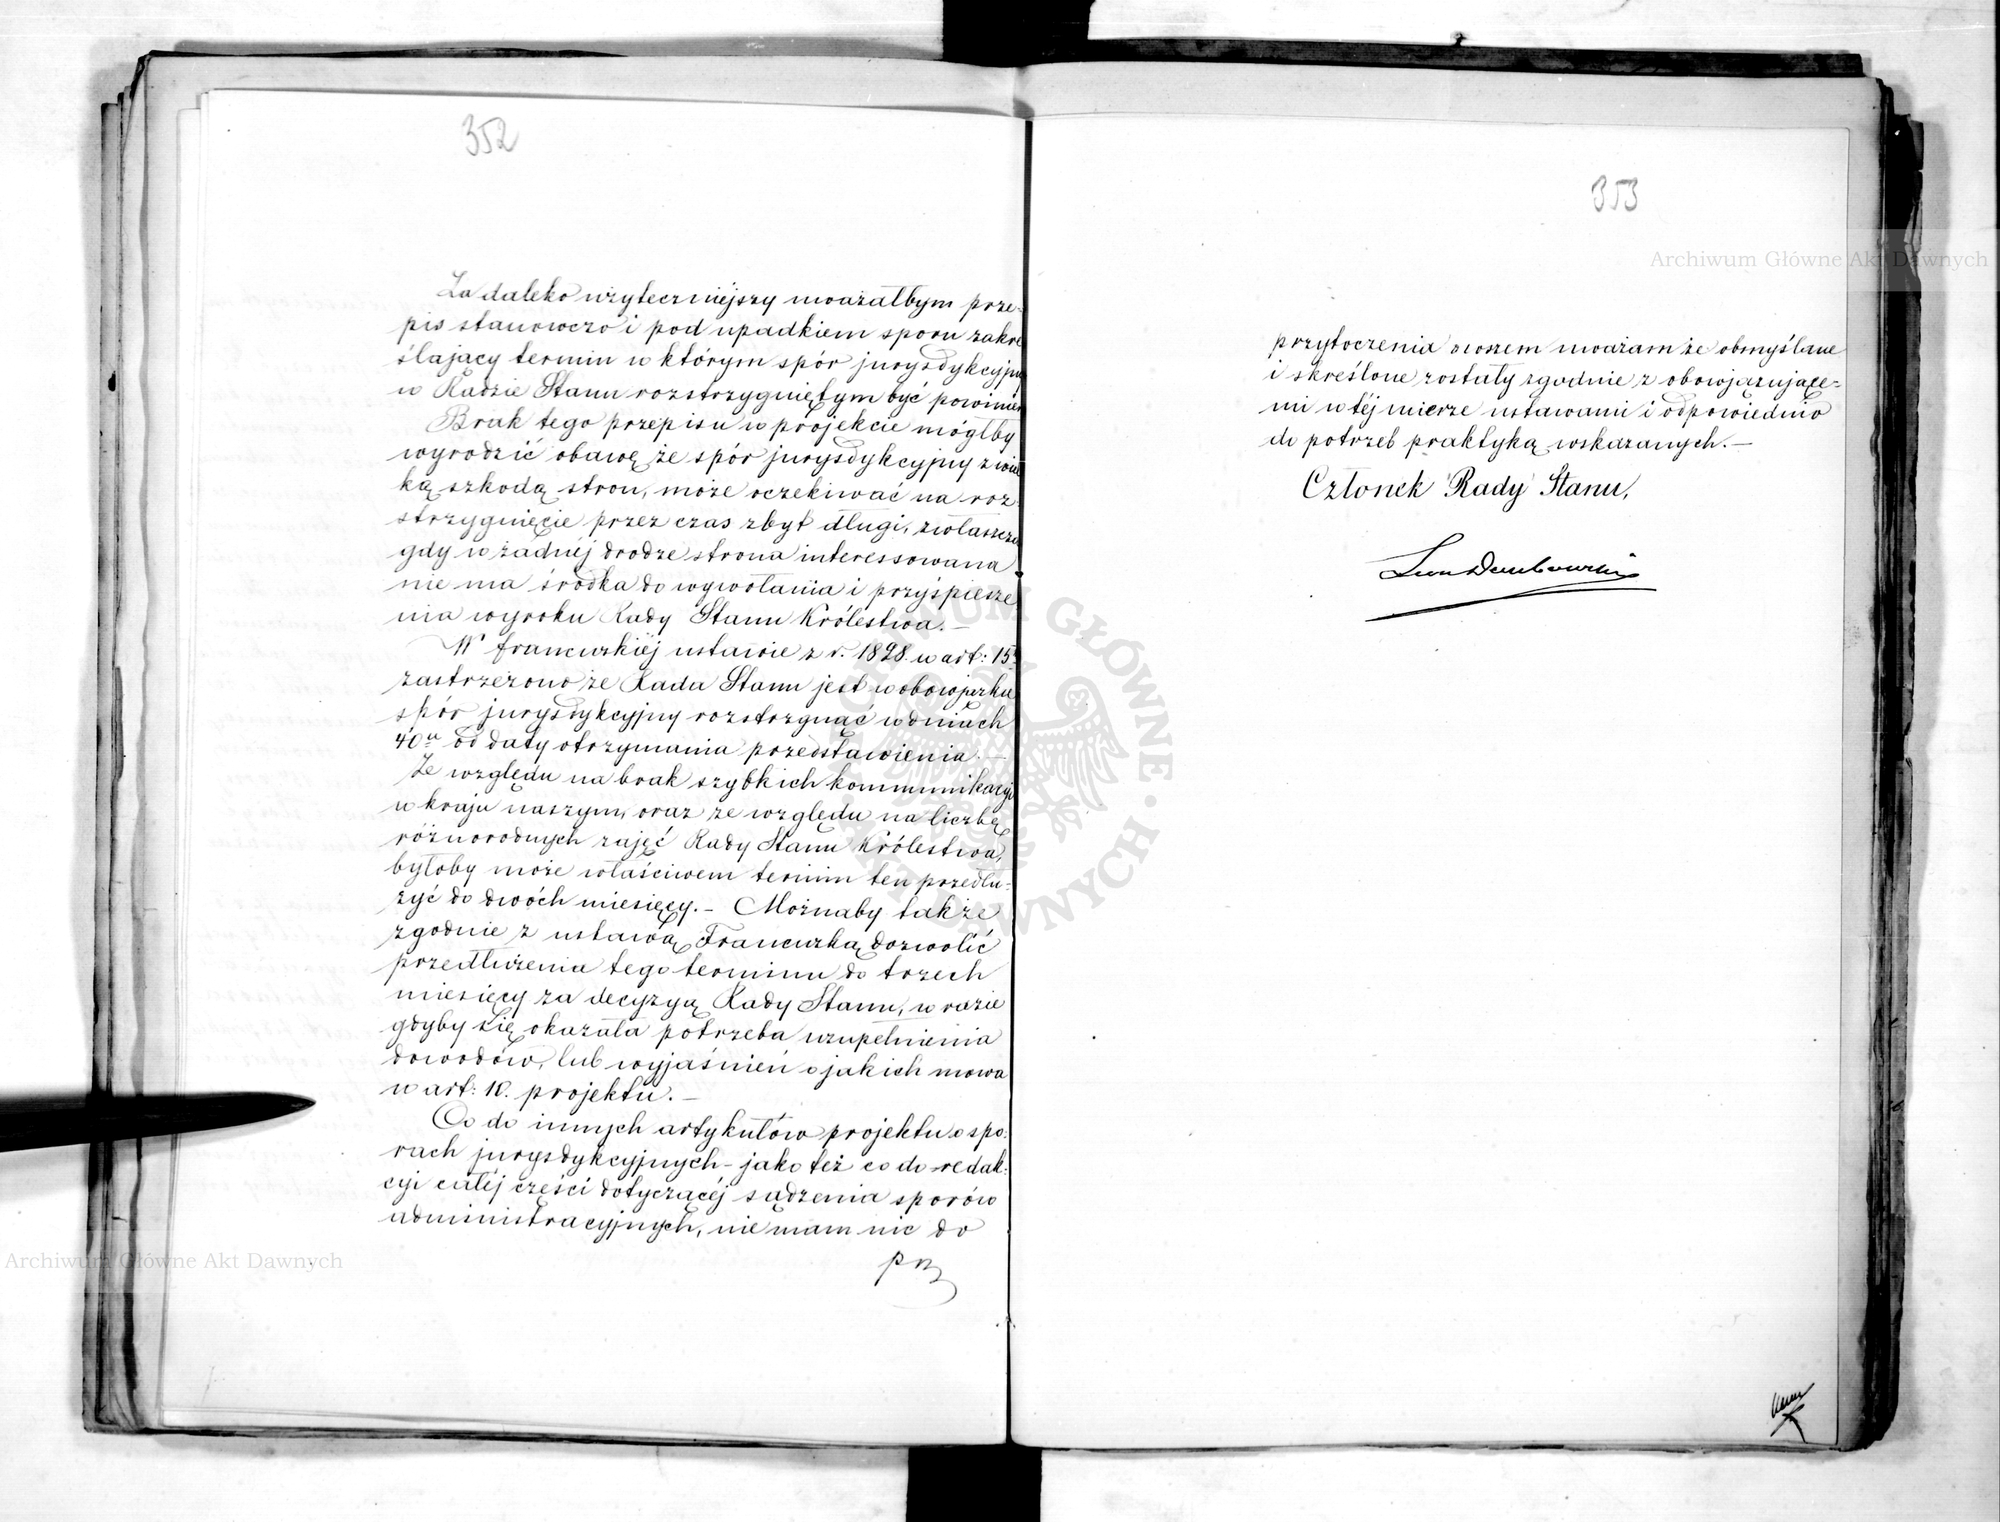 352
Za daleko użyteczniejszy uważałbym prze-
pis stanowczo i pod upadkiem sporu zakre
ślający termin w którym spór jurysdykcyjny
w Radzie Stanu rozstrzygniętym być powinien
Brak tego przepisu w projekcie mógłby
wyrodzić obawę że spór jurysdykcyjny z wiel
ką szkodą stron, może oczekiwać na roz
strzygnięcie przez czas zbyt długi, zwłaszcza
gdy w żadnéj drodze strona interessowana
nie ma środka do wywołania i przyśpiesze
nia wyroku Rady Stanu Królestwa.—
W francuzkiéj ustawie z r. 1828 w art: 15
zastrzeżono że Rada Stanu jest w obowiązku
spór jurysdykcyjny rozstrzygnąć w dniach
40u od daty otrzymania przedstawienia.—
Ze względu na brak szybkich kommunikacyi
w kraju naszym, oraz ze względu na liczbę
różnorodnych zajęć Rady Stanu Królestwa,
byłoby może właściwem termin ten przedłu-
żyć do dwóch miesięcy.— Możnaby także
zgodnie z ustawą Francuzką dozwolić
przedłużenia tego terminu do trzech
miesięcy za decyzyą Rady Stanu, w razie
gdyby się okazała potrzeba uzupełnienia
dowodów, lub wyjaśnień o jakich mowa
w art: 10. projektu.—
Co do innych artykułów projektu o spo-
rach jurysdykcyjnych – jako też co do redak-
cyi całéj części dotyczącéj sądzenia sporów
administracyjnych, nie mam nic do
prz
353
przytoczenia owszem uważam że obmyślane
i skreślone zostały zgodnie z obowiązujące-
mi w téj mierze ustawami i odpowiednio
do potrzeb praktyką wskazanych.—
Członek Rady Stanu,
Leon Dembowski
Archiwum Główne Akt Dawnych
Archiwum Główne Akt Dawnych
ARCHIWUM GŁÓWNE AKT DAWNYCH